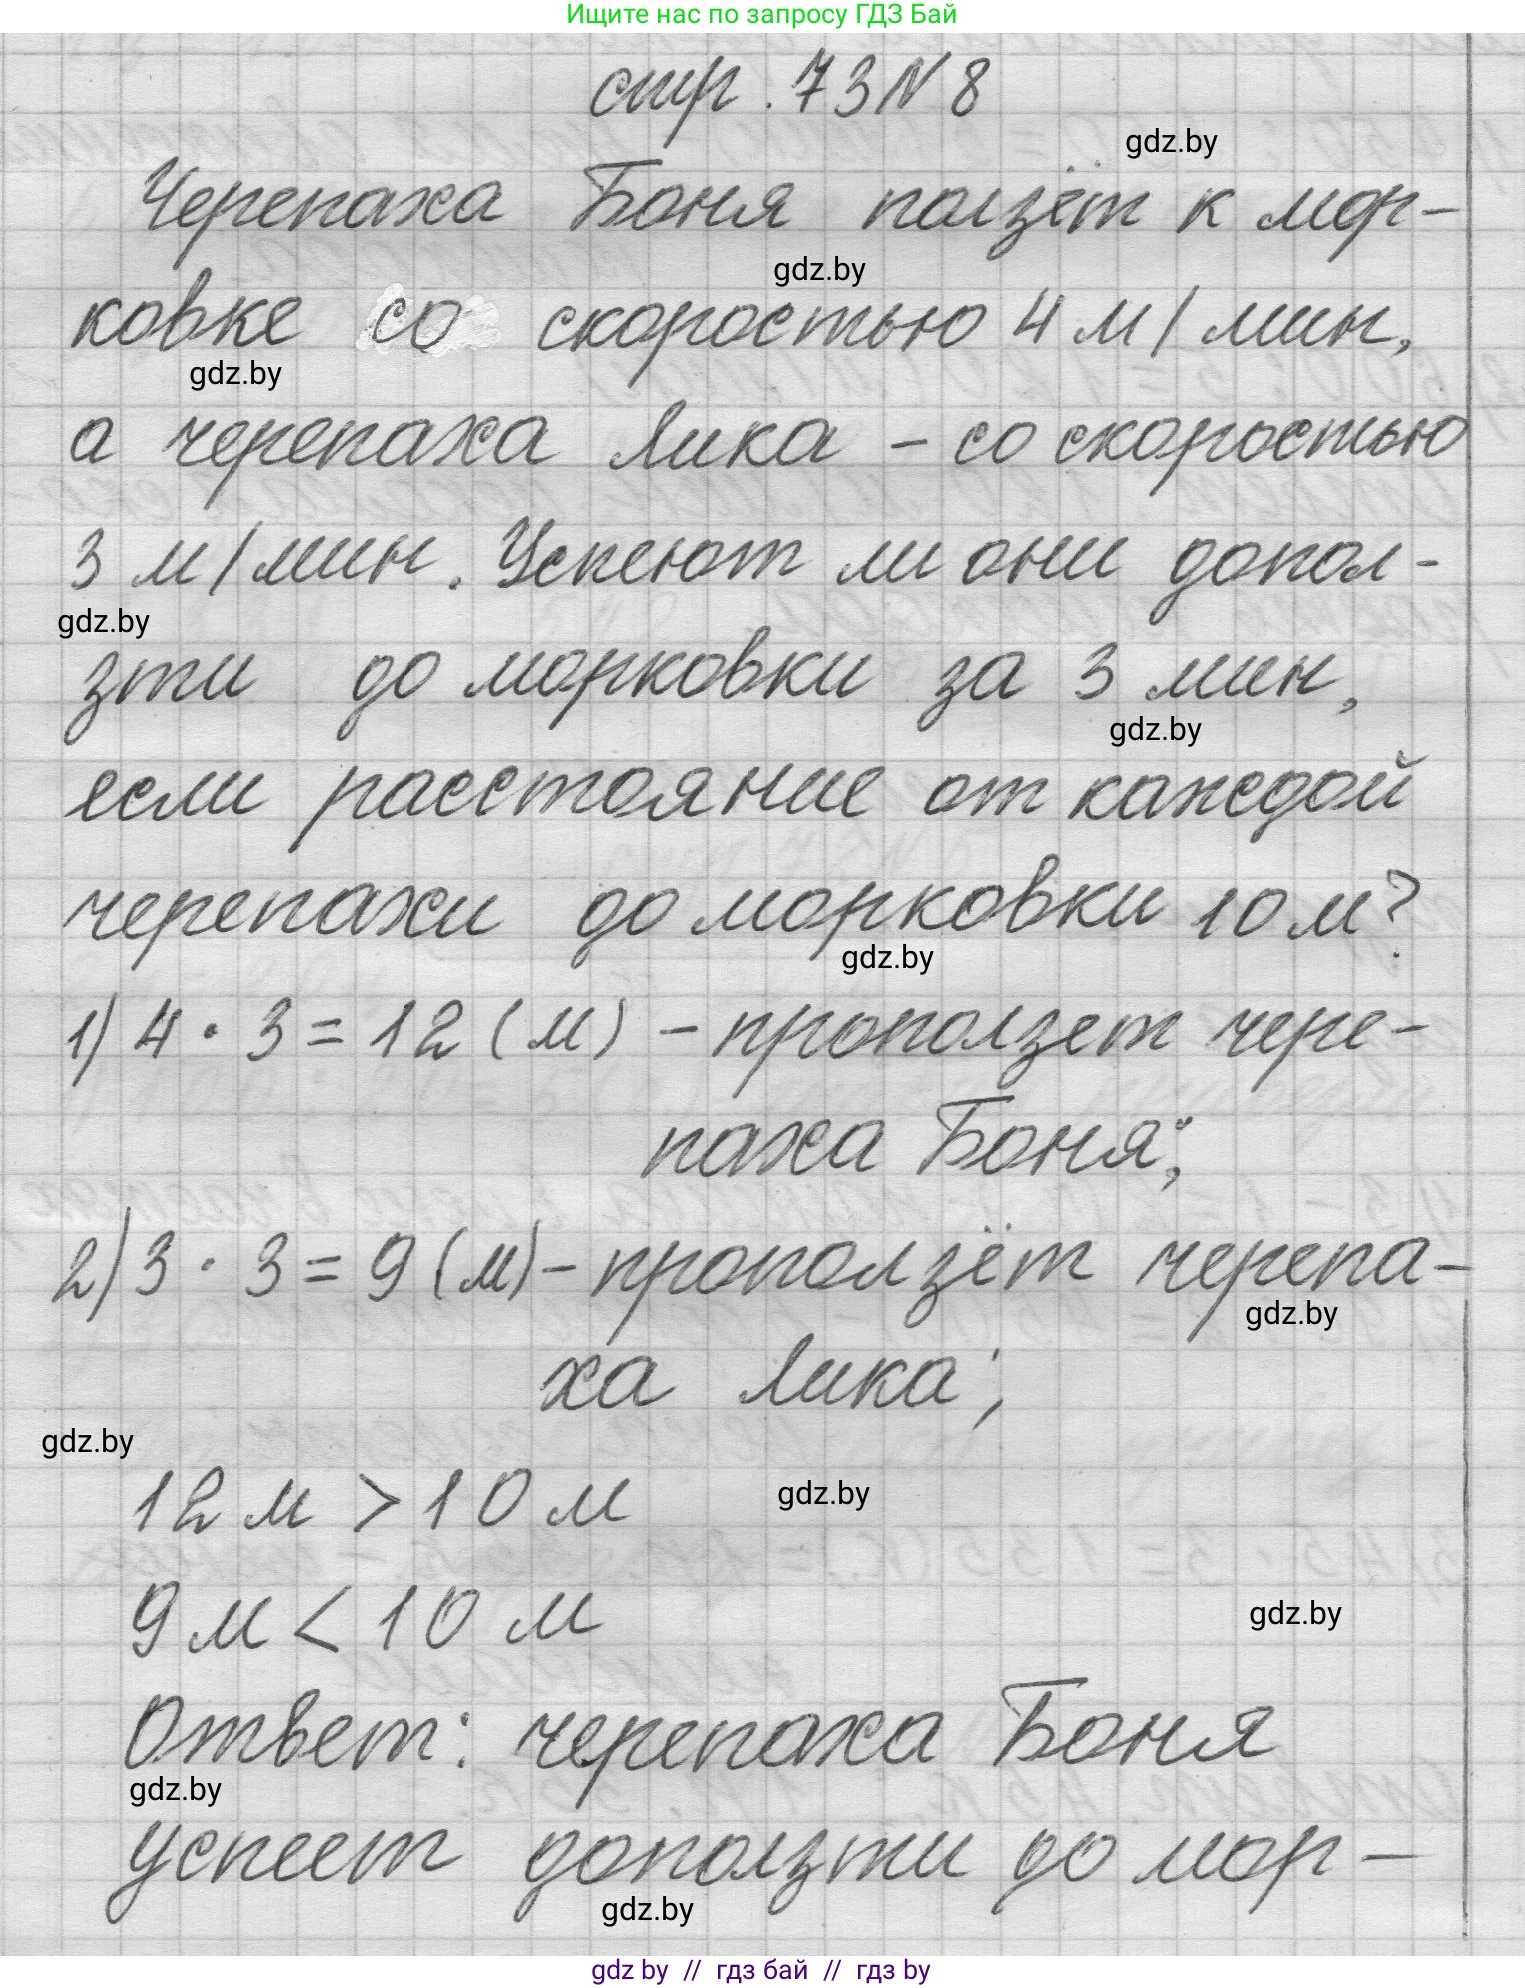 Ищите нас по запросу ГДЗ Бай
стр. 73 N 8
gdz.by
Черепаха Боня ползёт к мор-
gdz.by
ковке со скоростью 4 м/мин,
gdz.by
а черепаха Лика - со скоростью
3 м/мин. Успеют ли они допол-
gdz.by
зти до морковки за 3 мин,
gdz.by
если расстояние от каждой
черепахи до морковки 10 м?
gdz.by
1) 4 · 3 = 12 (м) - проползет чере-
паха Боня;
2) 3 · 3 = 9 (м) - проползёт черепа-
gdz.by
ха Лика;
gdz.by
12 м > 10 м
gdz.by
9 м < 10 м
gdz.by
Ответ: черепаха Боня
gdz.by
успеет доползти до мор-
gdz.by
gdz by // гдз бай // гдз by